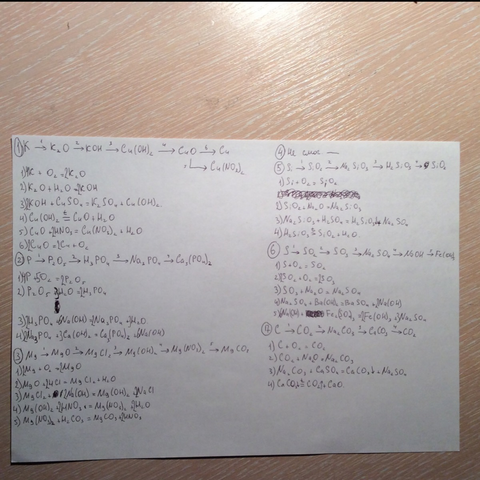 ① K → K₂O → KOH → Cu(OH)₂ → CuO → Cu
→ Cu(NO₃)₂
1) 4K + O₂ = 2K₂O
2) K₂O + H₂O = 2KOH
3) 2KOH + CuSO₄ = K₂SO₄ + Cu(OH)₂
4) Cu(OH)₂ = CuO + H₂O
5) CuO + 2HNO₃ = Cu(NO₃)₂ + H₂O
6) 2CuO = 2Cu + O₂
② P → P₂O₅ → H₃PO₄ → Na₃PO₄ → Ca₃(PO₄)₂
1) 4P + 5O₂ = 2P₂O₅
2) P₂O₅ + 3H₂O = 2H₃PO₄
3) H₃PO₄ + 3Na(OH) = Na₃PO₄ + 3H₂O
4) 2Na₃PO₄ + 3Ca(OH)₂ = Ca₃(PO₄)₂ + 6Na(OH)
③ Mg → MgO → MgCl₂ → Mg(OH)₂ → Mg(NO₃)₂ → MgCO₃
1) 2Mg + O₂ = 2MgO
2) MgO + 2HCl = MgCl₂ + H₂O
3) MgCl₂ + 2Na(OH) = Mg(OH)₂ + 2NaCl
4) Mg(OH)₂ + 2HNO₃ = Mg(NO₃)₂ + 2H₂O
5) Mg(NO₃)₂ + H₂CO₃ = MgCO₃ + 2HNO₃
④ Не смог —
⑤ Si → SiO₂ → Na₂SiO₃ → H₂SiO₃ → SiO₂
1) Si + O₂ = SiO₂
2) SiO₂ + Na₂O = Na₂SiO₃
3) Na₂SiO₃ + H₂SO₄ = H₂SiO₃↓ + Na₂SO₄
4) H₂SiO₃ = SiO₂ + H₂O
⑥ S → SO₂ → SO₃ → Na₂SO₄ → NaOH → Fe(OH)₃
1) S + O₂ = SO₂
2) 2SO₂ + O₂ = 2SO₃
3) SO₃ + Na₂O = Na₂SO₄
4) Na₂SO₄ + Ba(OH)₂ = BaSO₄ + 2Na(OH)
C → CO₂ → Na₂CO₃ → CaCO₃ → CO₂
1) C + O₂ = CO₂
2) CO₂ + Na₂O = Na₂CO₃
3) Na₂CO₃ + CaSO₄ = CaCO₃↓ + Na₂SO₄
4) CaCO₃ = CO₂↑ + CaO